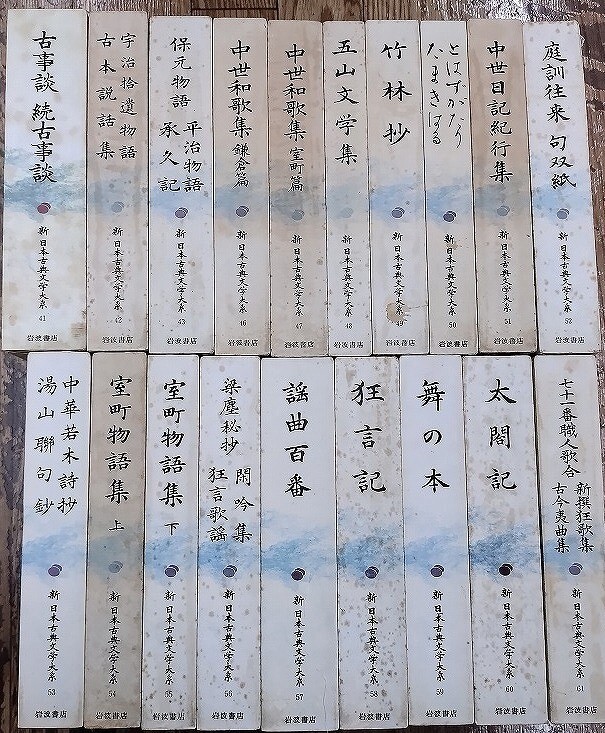 古事談 続古事談
新日本古典文学大系
41
岩波書店
宇治拾遺物語
古本説話集
新日本古典文学大系
42
岩波書店
保元物語 平治物語
承久記
新日本古典文学大系
43
岩波書店
中世和歌集 鎌倉篇
新日本古典文学大系
46
岩波書店
中世和歌集 室町篇
新日本古典文学大系
47
岩波書店
五山文学集
新日本古典文学大系
48
岩波書店
竹林抄
新日本古典文学大系
49
岩波書店
とはずがたり
たまきはる
新日本古典文学大系
50
岩波書店
中世日記紀行集
新日本古典文学大系
51
岩波書店
庭訓往来 句双紙
新日本古典文学大系
52
岩波書店
中華若木詩抄
湯山聯句鈔
新日本古典文学大系
53
岩波書店
室町物語集 上
新日本古典文学大系
54
岩波書店
室町物語集 下
新日本古典文学大系
55
岩波書店
梁塵秘抄 閑吟集
狂言歌謡
新日本古典文学大系
56
岩波書店
謡曲百番
新日本古典文学大系
57
岩波書店
狂言記
新日本古典文学大系
58
岩波書店
舞の本
新日本古典文学大系
59
岩波書店
太閤記
新日本古典文学大系
60
岩波書店
七十一番職人歌合
新撰狂歌集
古今夷曲集
新日本古典文学大系
61
岩波書店